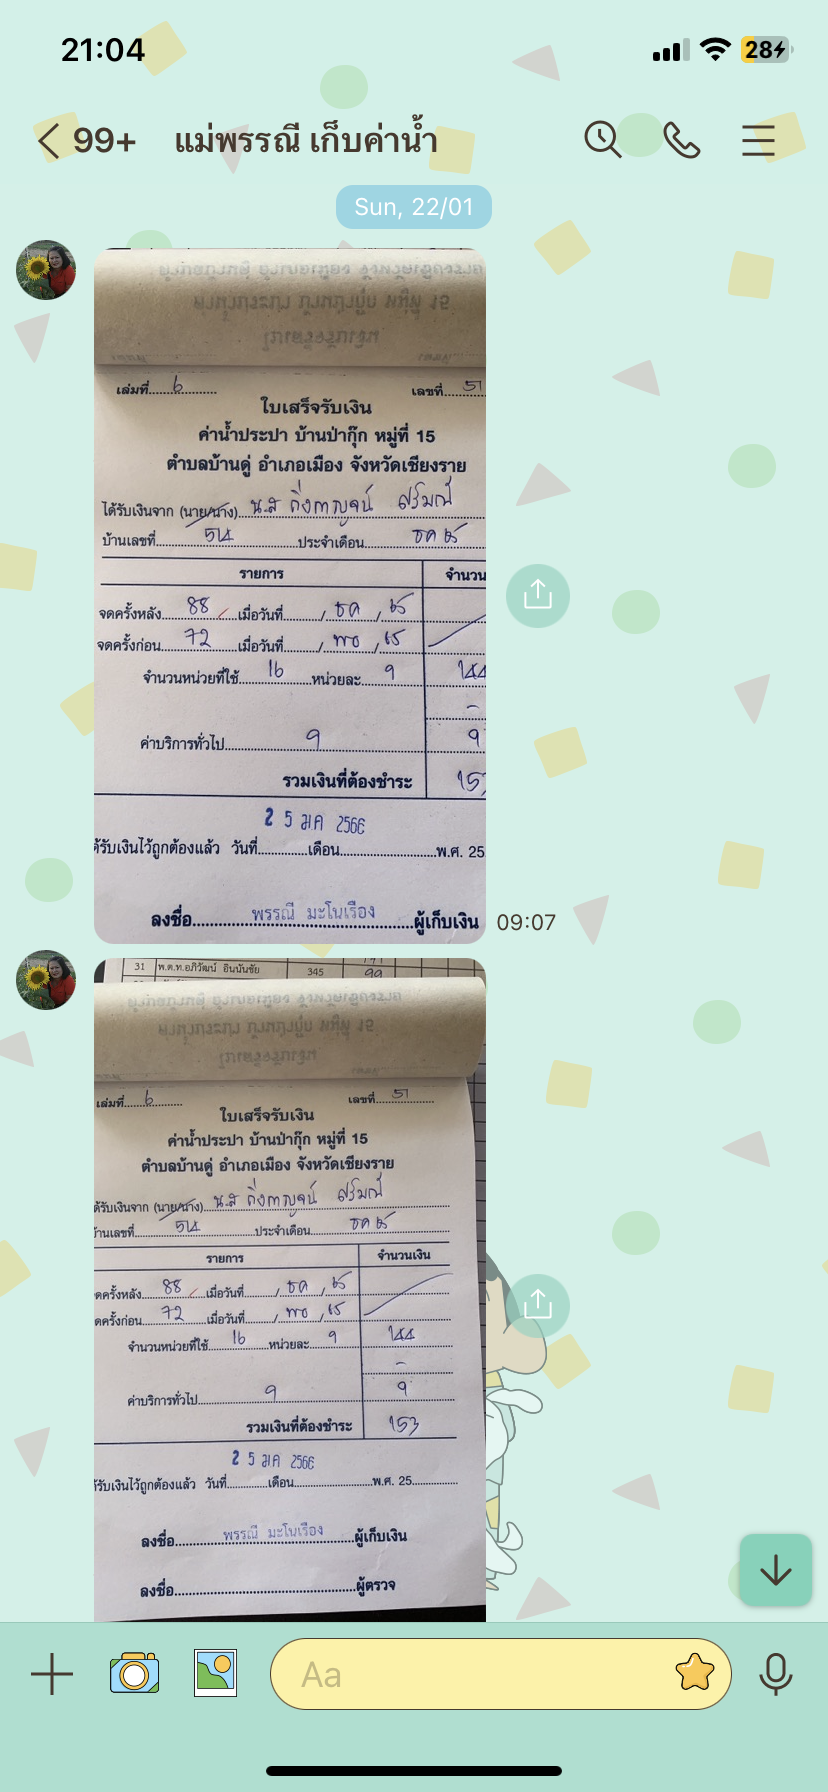 21:04
28
99+ แม่พรรณี เก็บค่าน้ำ
Sun, 22/01
เล่มที่ 6 เลขที่ 51
ใบเสร็จรับเงิน
ค่าน้ำประปา บ้านป่ากุ๊ก หมู่ที่ 15
ตำบลบ้านดู่ อำเภอเมือง จังหวัดเชียงราย
ได้รับเงินจาก (นาย/นาง) น.ส กิ่งกาญจน์
บ้านเลขที่ 514 ประจำเดือน ธค 65
รายการ จำนวน
จดครั้งหลัง 88 เมื่อวันที่ / ธค / 65
จดครั้งก่อน 72 เมื่อวันที่ / พย / 65
จำนวนหน่วยที่ใช้ 16 หน่วยละ 9 144
-
ค่าบริการทั่วไป 9 9
รวมเงินที่ต้องชำระ 153
25 มค 2566
ด้รับเงินไว้ถูกต้องแล้ว วันที่ เดือน พ.ศ. 25
ลงชื่อ พรรณี มะโนเรือง ผู้เก็บเงิน
09:07
31 พ.ต.ท.อภิวัฒน์ อินนันชัย 345
99
เล่มที่ 6 เลขที่ 51
ใบเสร็จรับเงิน
ค่าน้ำประปา บ้านป่ากุ๊ก หมู่ที่ 15
ตำบลบ้านดู่ อำเภอเมือง จังหวัดเชียงราย
ด้รับเงินจาก (นาย/นาง) น.ส กิ่งกาญจน์
้านเลขที่ 514 ประจำเดือน ธค 65
รายการ จำนวนเงิน
จดครั้งหลัง 88 เมื่อวันที่ / ธค / 65
จดครั้งก่อน 72 เมื่อวันที่ / พย / 65
จำนวนหน่วยที่ใช้ 16 หน่วยละ 9 144
-
ค่าบริการทั่วไป 9 9
รวมเงินที่ต้องชำระ 153
25 มค 2566
ด้รับเงินไว้ถูกต้องแล้ว วันที่ เดือน พ.ศ. 25
ลงชื่อ พรรณี มะโนเรือง ผู้เก็บเงิน
ลงชื่อ ผู้ตรวจ
Aa